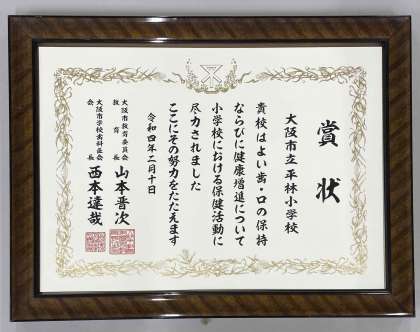 賞状
大阪市立平林小学校
貴校はよい歯・口の保持
ならびに健康増進について
小学校における保健活動に
尽力されました
ここにその努力をたたえます
令和四年二月十日
大阪市教育委員会
教育長 山本晋次
大阪市学校歯科医会
会長 西本達哉